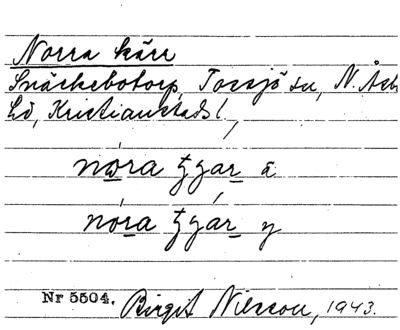 Norra kärr
Snäckebotorp, Torsjö sn, N. Åsb
hd, Kristianstads l,
nωra tʒar ā
nóra tʒár y
Nr 5504. Birgit Nilsson, 1943.